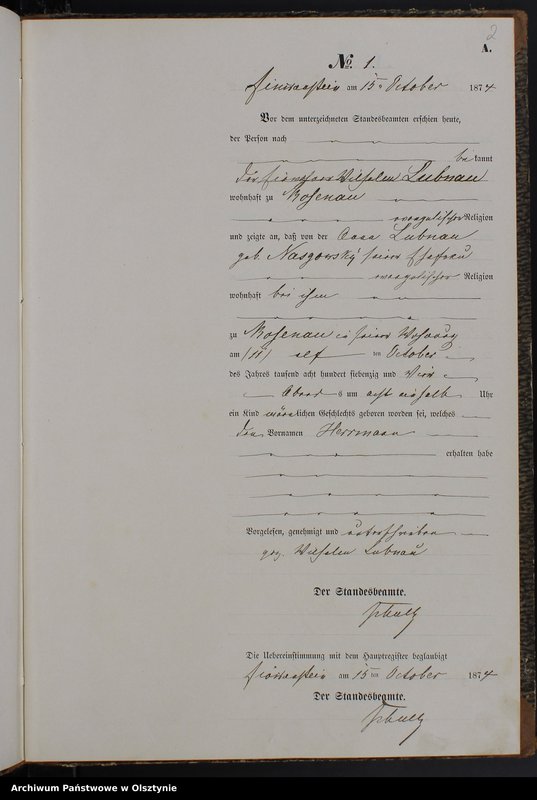 2
A.
No. 1.
am 15 October 1874
Vor dem unterzeichneten Standesbeamten erschien heute,
der Person nach
bekannt
der Wilhelm Lubnau
wohnhaft zu Rosenau
evangelischer Religion
und zeigte an, daß von der Lubnau
geb. Nasgowsky seiner Ehefrau
evangelischer Religion
wohnhaft bei ihm
zu Rosenau in seiner Wohnung
am (11) elf ten October
des Jahres tausend acht hundert siebenzig und vier
Abends um acht einhalb Uhr
ein Kind männlichen Geschlechts geboren worden sei, welches
den Vornamen Herrmann
erhalten habe
Vorgelesen, genehmigt und unterschrieben
gez. Wilhelm Lubnau
Der Standesbeamte.
Die Uebereinstimmung mit dem Hauptregister beglaubigt
am 15 ten October 1874
Der Standesbeamte.
Archiwum Państwowe w Olsztynie